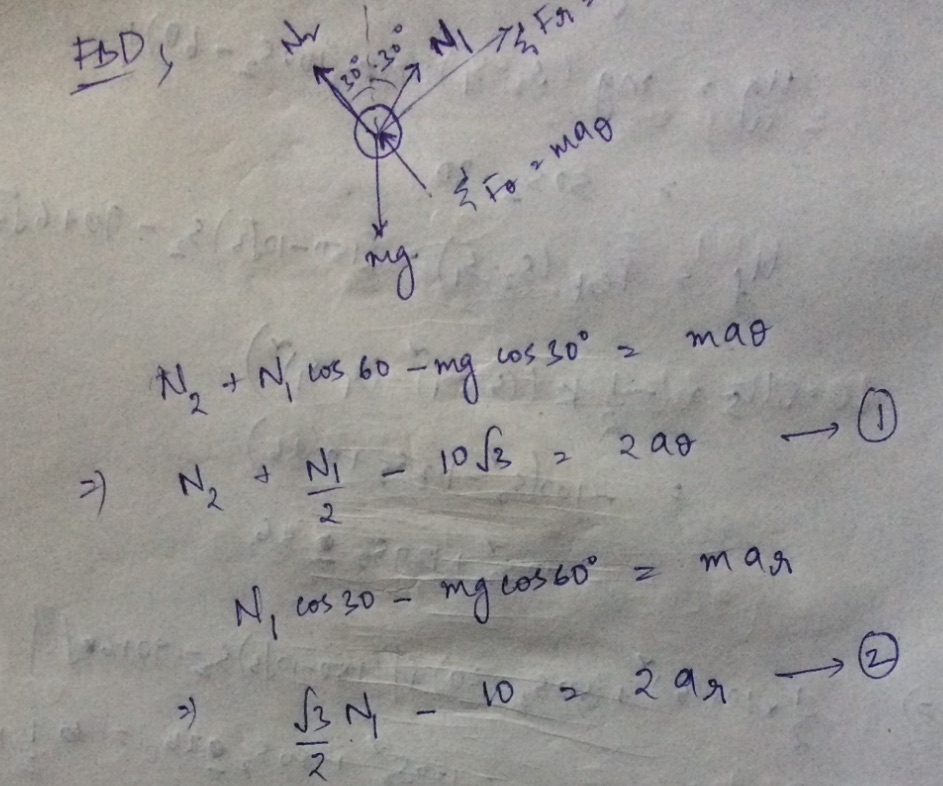 FBD;
N₂ 30° 30° N₁ ΣFr =
ΣFθ = maθ
mg
N₂ + N₁ cos 60 - mg cos 30° = maθ
⇒ N₂ + N₁/2 - 10√3 = 2aθ → ①
N₁ cos 30 - mg cos 60° = mar
⇒ √3/2 N₁ - 10 = 2ar → ②